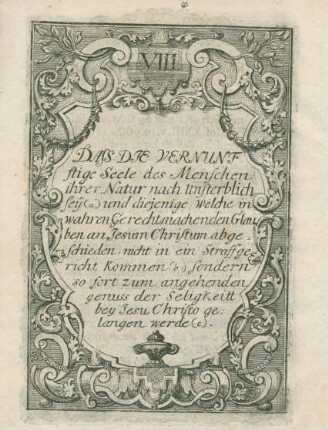 VIII
DASS DIE VERNUNF
ftige Seele des Menschen
ihrer Natur nach Unsterblich
seÿ (a) und diejenige welche in
wahren Gerechtmachenden Glau
ben an Jesum Christum abge-
schieden, nicht in ein Straffge-
richt Kommen (b) sondern
so fort zum angehenden
genuss der Seligkeitt
bey Jesu Christo ge-
langen werde (c).